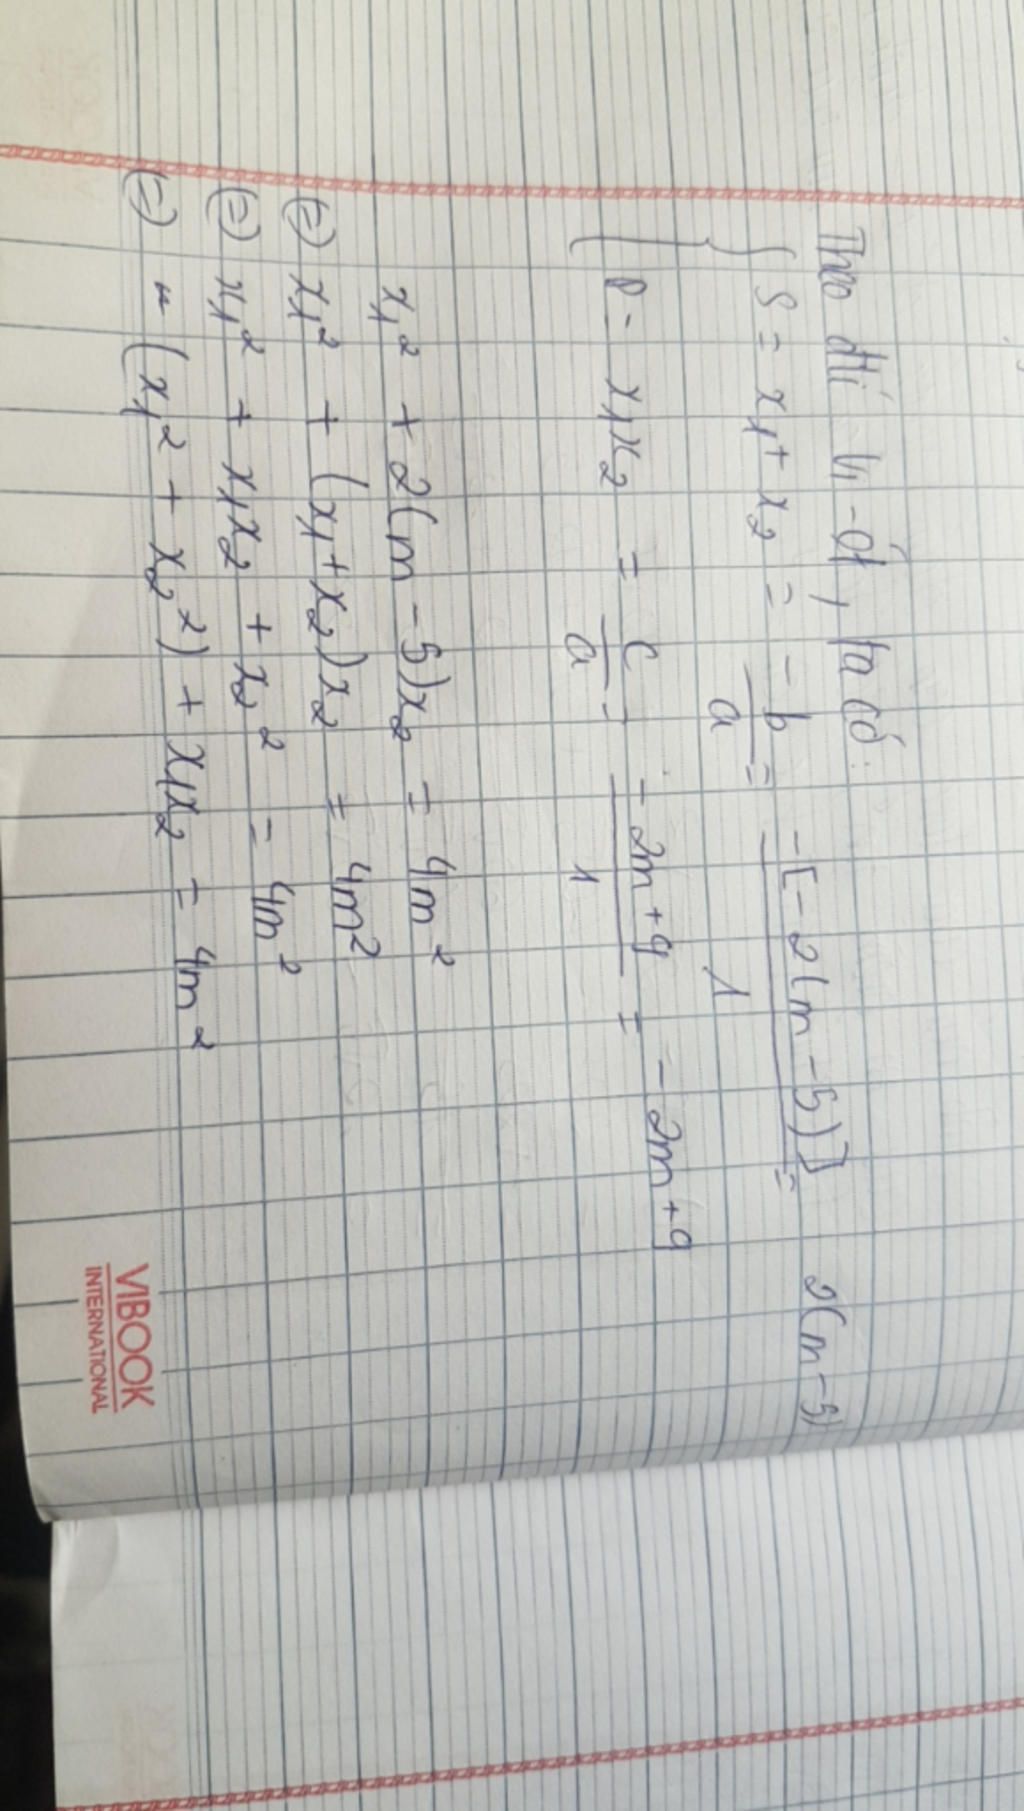 Theo đlí Vi-ét, ta có:
S = x₁ + x₂ = -b/a = -[-2(m-5)]/1 = 2(m-5)
P = x₁x₂ = c/a = -2m+9/1 = -2m+9
x₁² + 2(m-5)x₂ = 4m²
(=) x₁² + (x₁+x₂)x₂ = 4m²
(=) x₁² + x₁x₂ + x₂² = 4m²
(=) (x₁² + x₂²) + x₁x₂ = 4m²
VIBOOK
INTERNATIONAL